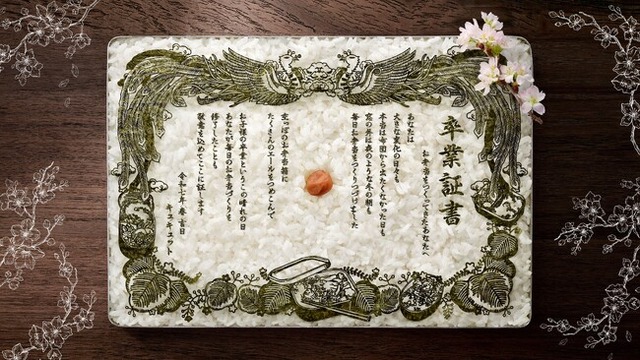 卒業証書
お弁当をつくってきたあなたへ
あなたは
大きな変化の日々も
本当は布団から出たくなかった日も
窓の外は夜のような冬の朝も
毎日お弁当をつくりつづけました
空っぽのお弁当箱に
たくさんのエールをつめこんで
お子様の卒業というこの晴れの日
あなたが毎日のお弁当づくりを
修了したことも
敬意を込めてここに証します
令和七年 春吉日
キユキユット